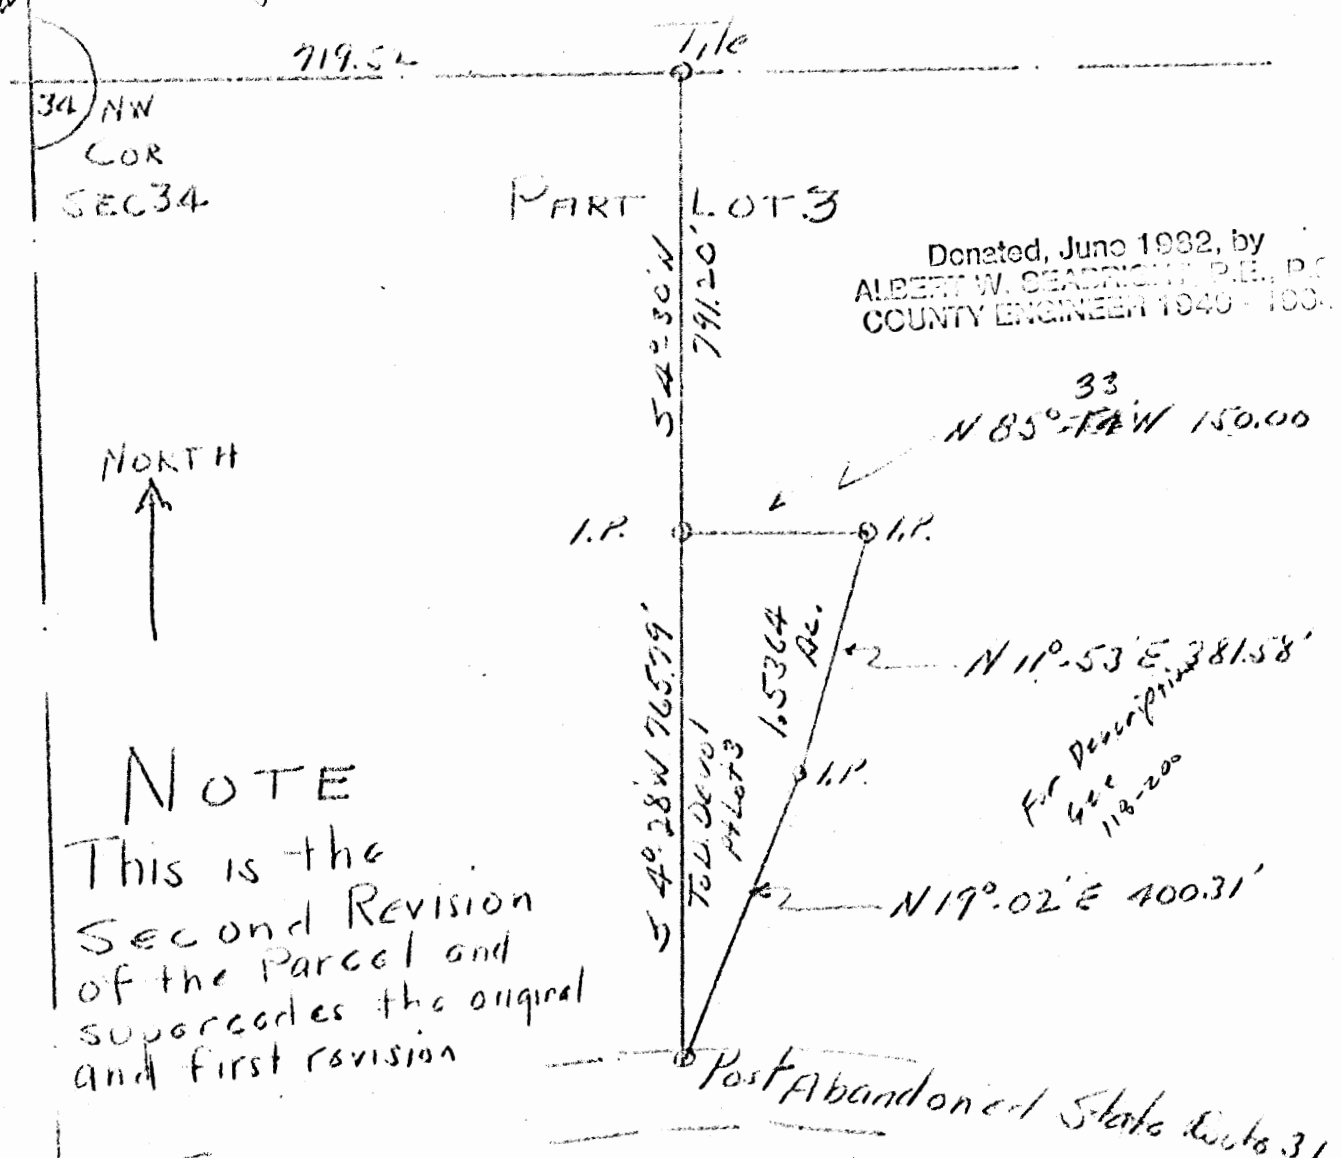 719.52
Tile
34
NW
COR
SEC 34
PART LOT 3
S 4°-30' W
791.20'
Donated, June 1982, by
ALBERT W. SEABRIGHT, P.E., P.S.
COUNTY ENGINEER 1940 -
33
N 85°-14' W 150.00
NORTH
I.P.
I.P.
1.5364
Ac.
N 11°-53' E 381.58'
S 4°-28' W 765.79'
Pt Lot 3
I.P.
For Description
See
118-200
N 19°-02' E 400.31'
NOTE
This is the
Second Revision
of the Parcel and
supercedes the original
and first revision
Post
Abandoned State Route 31